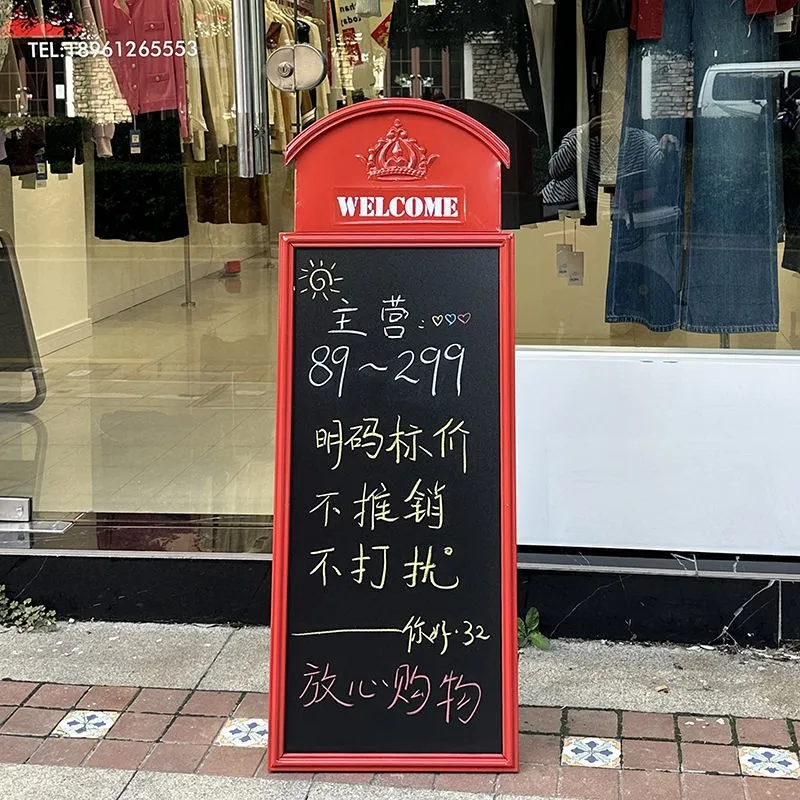 TEL:18961265553
WELCOME
主营:
89~299
明码标价
不推销
不打扰。
——你好·32
放心购物